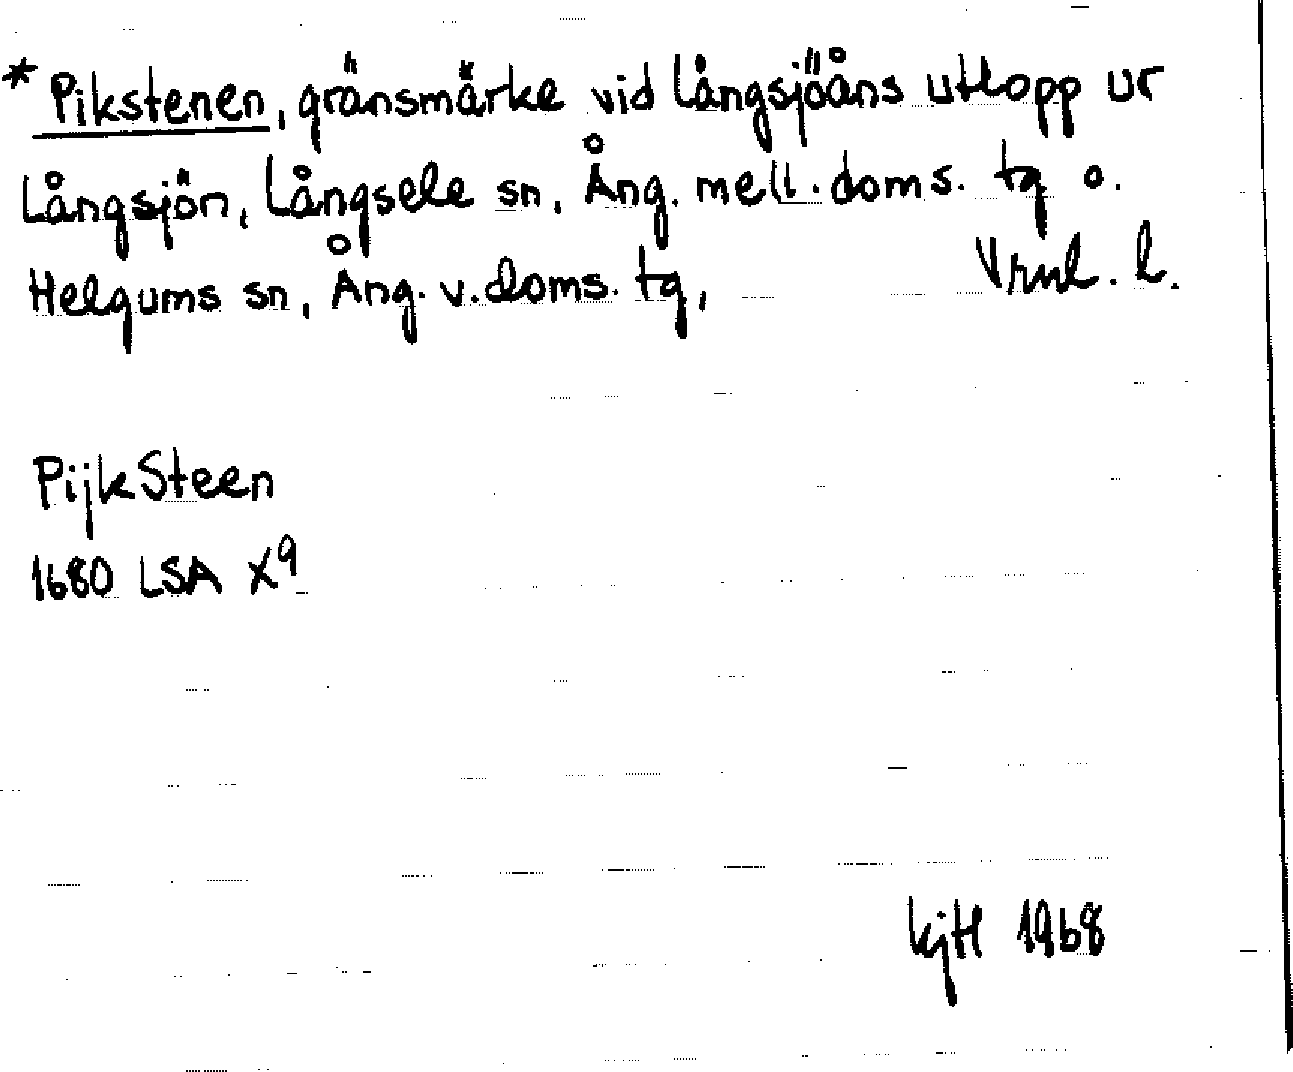 * Pikstenen, gränsmärke vid Långsjöåns utlopp ur
Långsjön, Långsele sn, Ång. mell. doms. tg o.
Helgums sn, Ång. v. doms. tg, Vrml. l.
PijkSteen
1680 LSA X9
KjH 1968